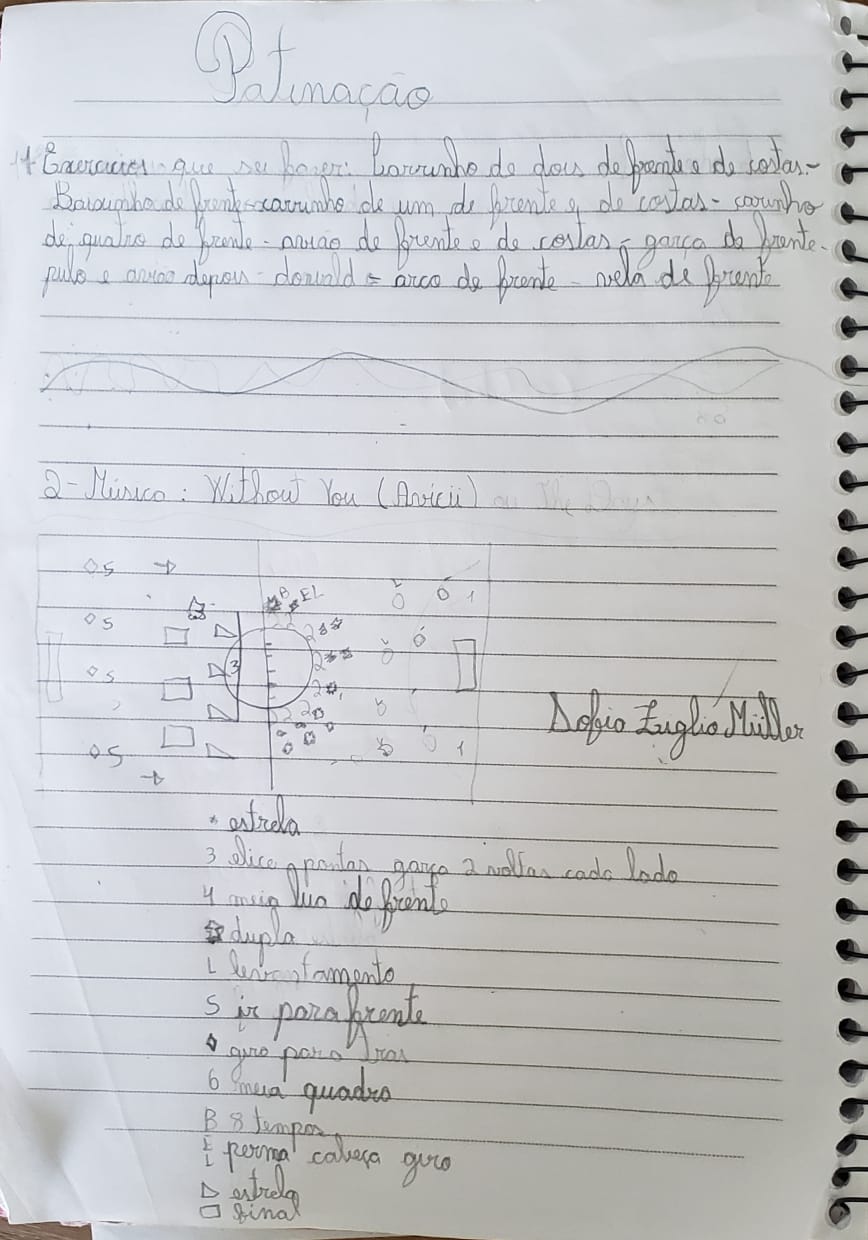 Patinação
1+ Exercicios que sei fazer: Carrinho de dois de frente e de costas-
de frente-carrinho de um de frente e de costas- carrinho
de quatro de frente- avião de frente e de costas- garça de frente-
pulo e avião depois- donald- arco de frente- vela de frente
2-Música: Without You (Avicii) ou The Days
◇ 5
B EL
1
◇ 5
2
◇ 5
3
2
2
◇ 5
2
1
Sofia Luglio Müller
* estrela
3 elice pontas garça 2 voltas cada lado
4 meia lua de frente
dupla
L levantamento
5 ir para frente
◇ giro para tras
6 meia quadra
B 8 tempos
E L perna cabeça giro
▷ estrela
□ final